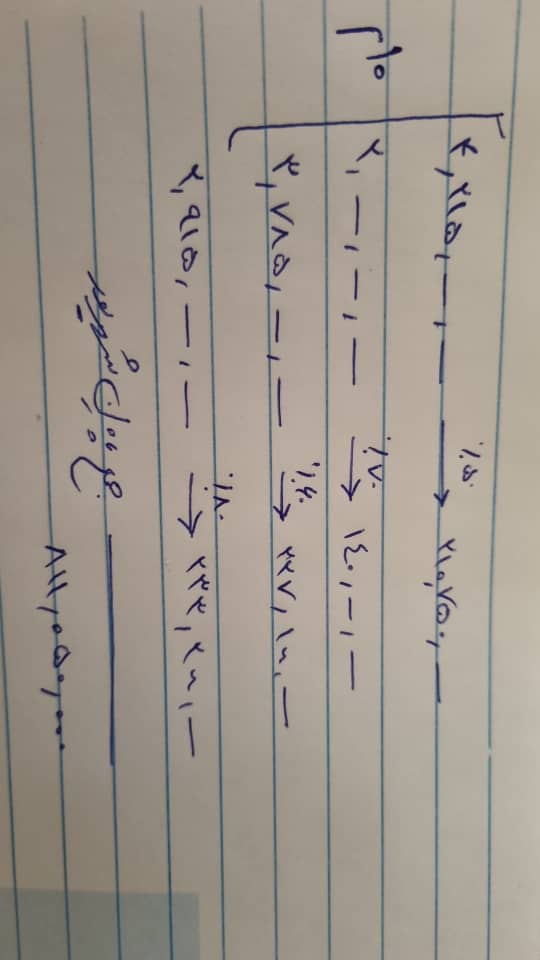 ۴,۲۱۵,—,— ٪۵ → ۲۱۰,۷۵۰,—
۲,—,—,— ٪۷ → ۱۴۰,—,—
۳,۷۸۵,—,— ٪۶ → ۲۲۷,۱۰۰,—
۲,۹۱۵,—,— ٪۸ → ۲۳۳,۲۰۰,—
جمع شهریور
۸۱۱,۰۵۰,۰۰۰